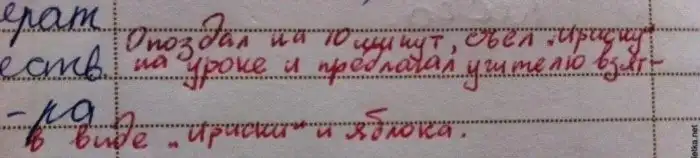 ерат
еств
-ра
Опоздал на 10 минут, съел „Ириску"
на уроке и предлагал учителю взят-
в виде „Ириски" и яблока.